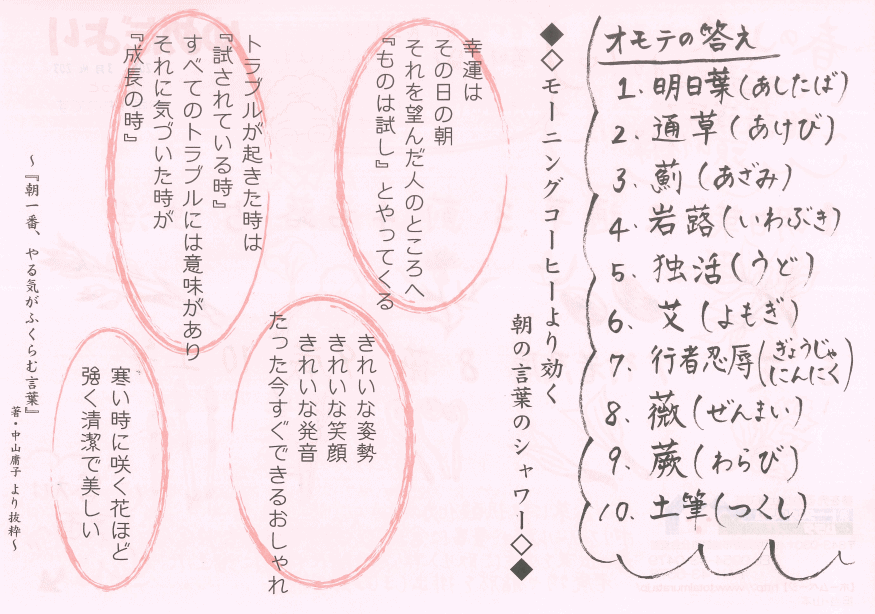 オモテの答え
1. 明日葉(あしたば)
2. 通草(あけび)
3. 薊(あざみ)
4. 岩蕗(いわぶき)
5. 独活(うど)
6. 艾(よもぎ)
7. 行者忍辱(ぎょうじゃにんにく)
8. 薇(ぜんまい)
9. 蕨(わらび)
10. 土筆(つくし)
◆◇モーニングコーヒーより効く
朝の言葉のシャワー◇◆
幸運は
その日の朝
それを望んだ人のところへ
『ものは試し』とやってくる
きれいな姿勢
きれいな笑顔
きれいな発音
たった今すぐできるおしゃれ
トラブルが起きた時は
『試されている時』
すべてのトラブルには意味があり
それに気づいた時が
『成長の時』
寒い時に咲く花ほど
強く清潔で美しい
～『朝一番、やる気がふくらむ言葉』
著・中山庸子 より抜粋～